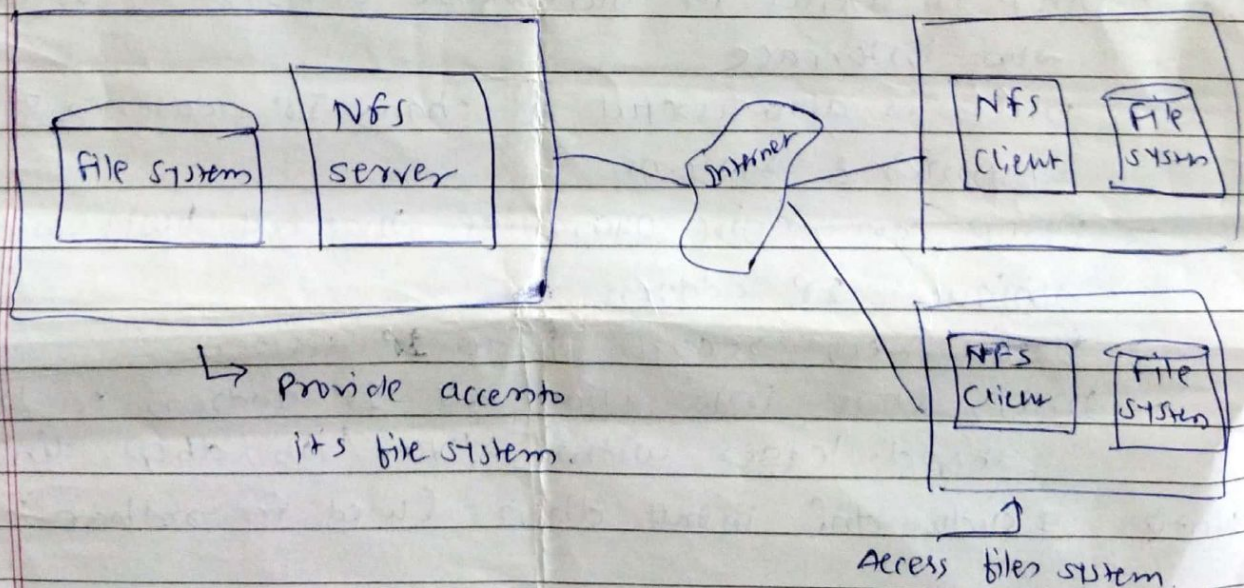 File system
Nfs
server
Internet
Nfs
Client
File
system
NFS
Client
File
system
Provide access to
it's file system.
Access files system